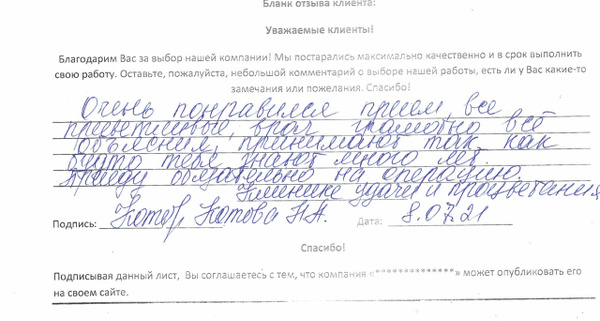 Бланк отзыва клиента:
Уважаемые клиенты!
Благодарим Вас за выбор нашей компании! Мы постарались максимально качественно и в срок выполнить
свою работу. Оставьте, пожалуйста, небольшой комментарий о выборе нашей работы, есть ли у Вас какие-то
замечания или пожелания. Спасибо!
Очень понравился прием, все
приветливые, врач грамотно всё
объяснил, принимают так как
будто тебя знают много лет.
Приеду обязательно на операцию.
Клинике удачи и процветания
Подпись: Котова Н.А. Дата: 8.07.21
Спасибо!
Подписывая данный лист, Вы соглашаетесь с тем, что компания «**************» может опубликовать его
на своем сайте.